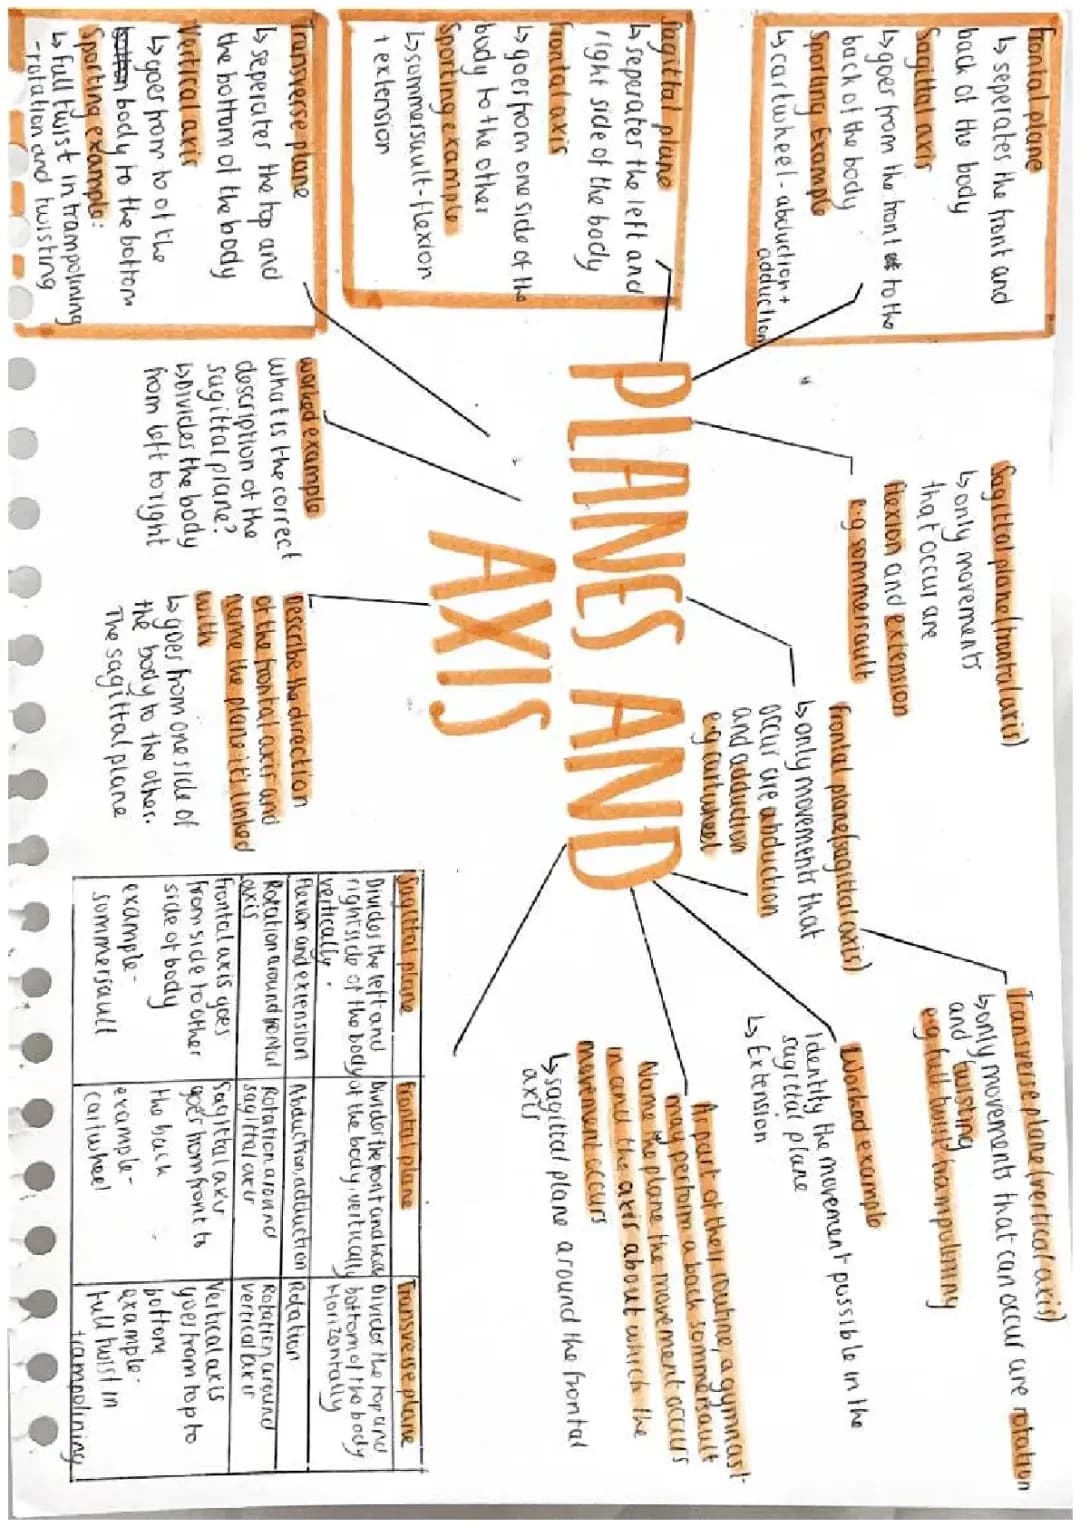 PLANES AND
AXIS
Frontal plane
↳ seperates the front and
back of the body
Sagittal axis
↳ goes from the front to the
back of the body
Sporting Example
↳ cartwheel - abduction +
adduction
Sagittal plane
↳ seperates the left and
right side of the body
frontal axis
↳ goes from one side of the
body to the other
Sporting example
↳ summersault-flexion
+ extension
Transverse plane
↳ seperates the top and
the bottom of the body
Vertical axis
↳ goes from to of the
body to the bottom
Sporting example:
↳ full twist in trampolining
-rotation and twisting
Sagittal plane (frontal axis)
↳ only movements
that occur are
flexion and extension
e.g sommersault
frontal plane (sagittal axis)
↳ only movements that
occur are abduction
and adduction
e.g cartwheel
Transverse plane (vertical axis)
↳ only movements that can occur are rotation
and twisting
e.g full twist trampolining
Worked example
Identify the movement possible in the
sagittal plane
↳ Extension
As part of their routine, a gymnast
may perform a back sommersault
Name the plane the movement occurs
in and the axis about which the
movement occurs
↳ sagittal plane around the frontal
axis
worked example
what is the correct
description of the
sagittal plane?
↳ Divides the body
from left to right
Describe the direction
of the frontal axis and
name the plane it's linked
with
↳ goes from one side of
the body to the other.
The sagittal plane
Sagittal plane
Divides the left and
right side of the body
vertically.
Flexion and extension
Rotation around frontal
axis
Frontal axis goes
from side to other
side of body
example-
sommersault
Frontal plane
Divides the front and back
of the body, vertically
Abduction, adduction
Rotation around
sagittal axis
Sagittal axis
goes from front to
the back
example-
cartwheel
Transverse plane
Divides the top and
bottom of the body
Horizontally
Rotation
Rotation around
vertical axis
Vertical axis
goes from top to
bottom
example-
full twist in
trampolining